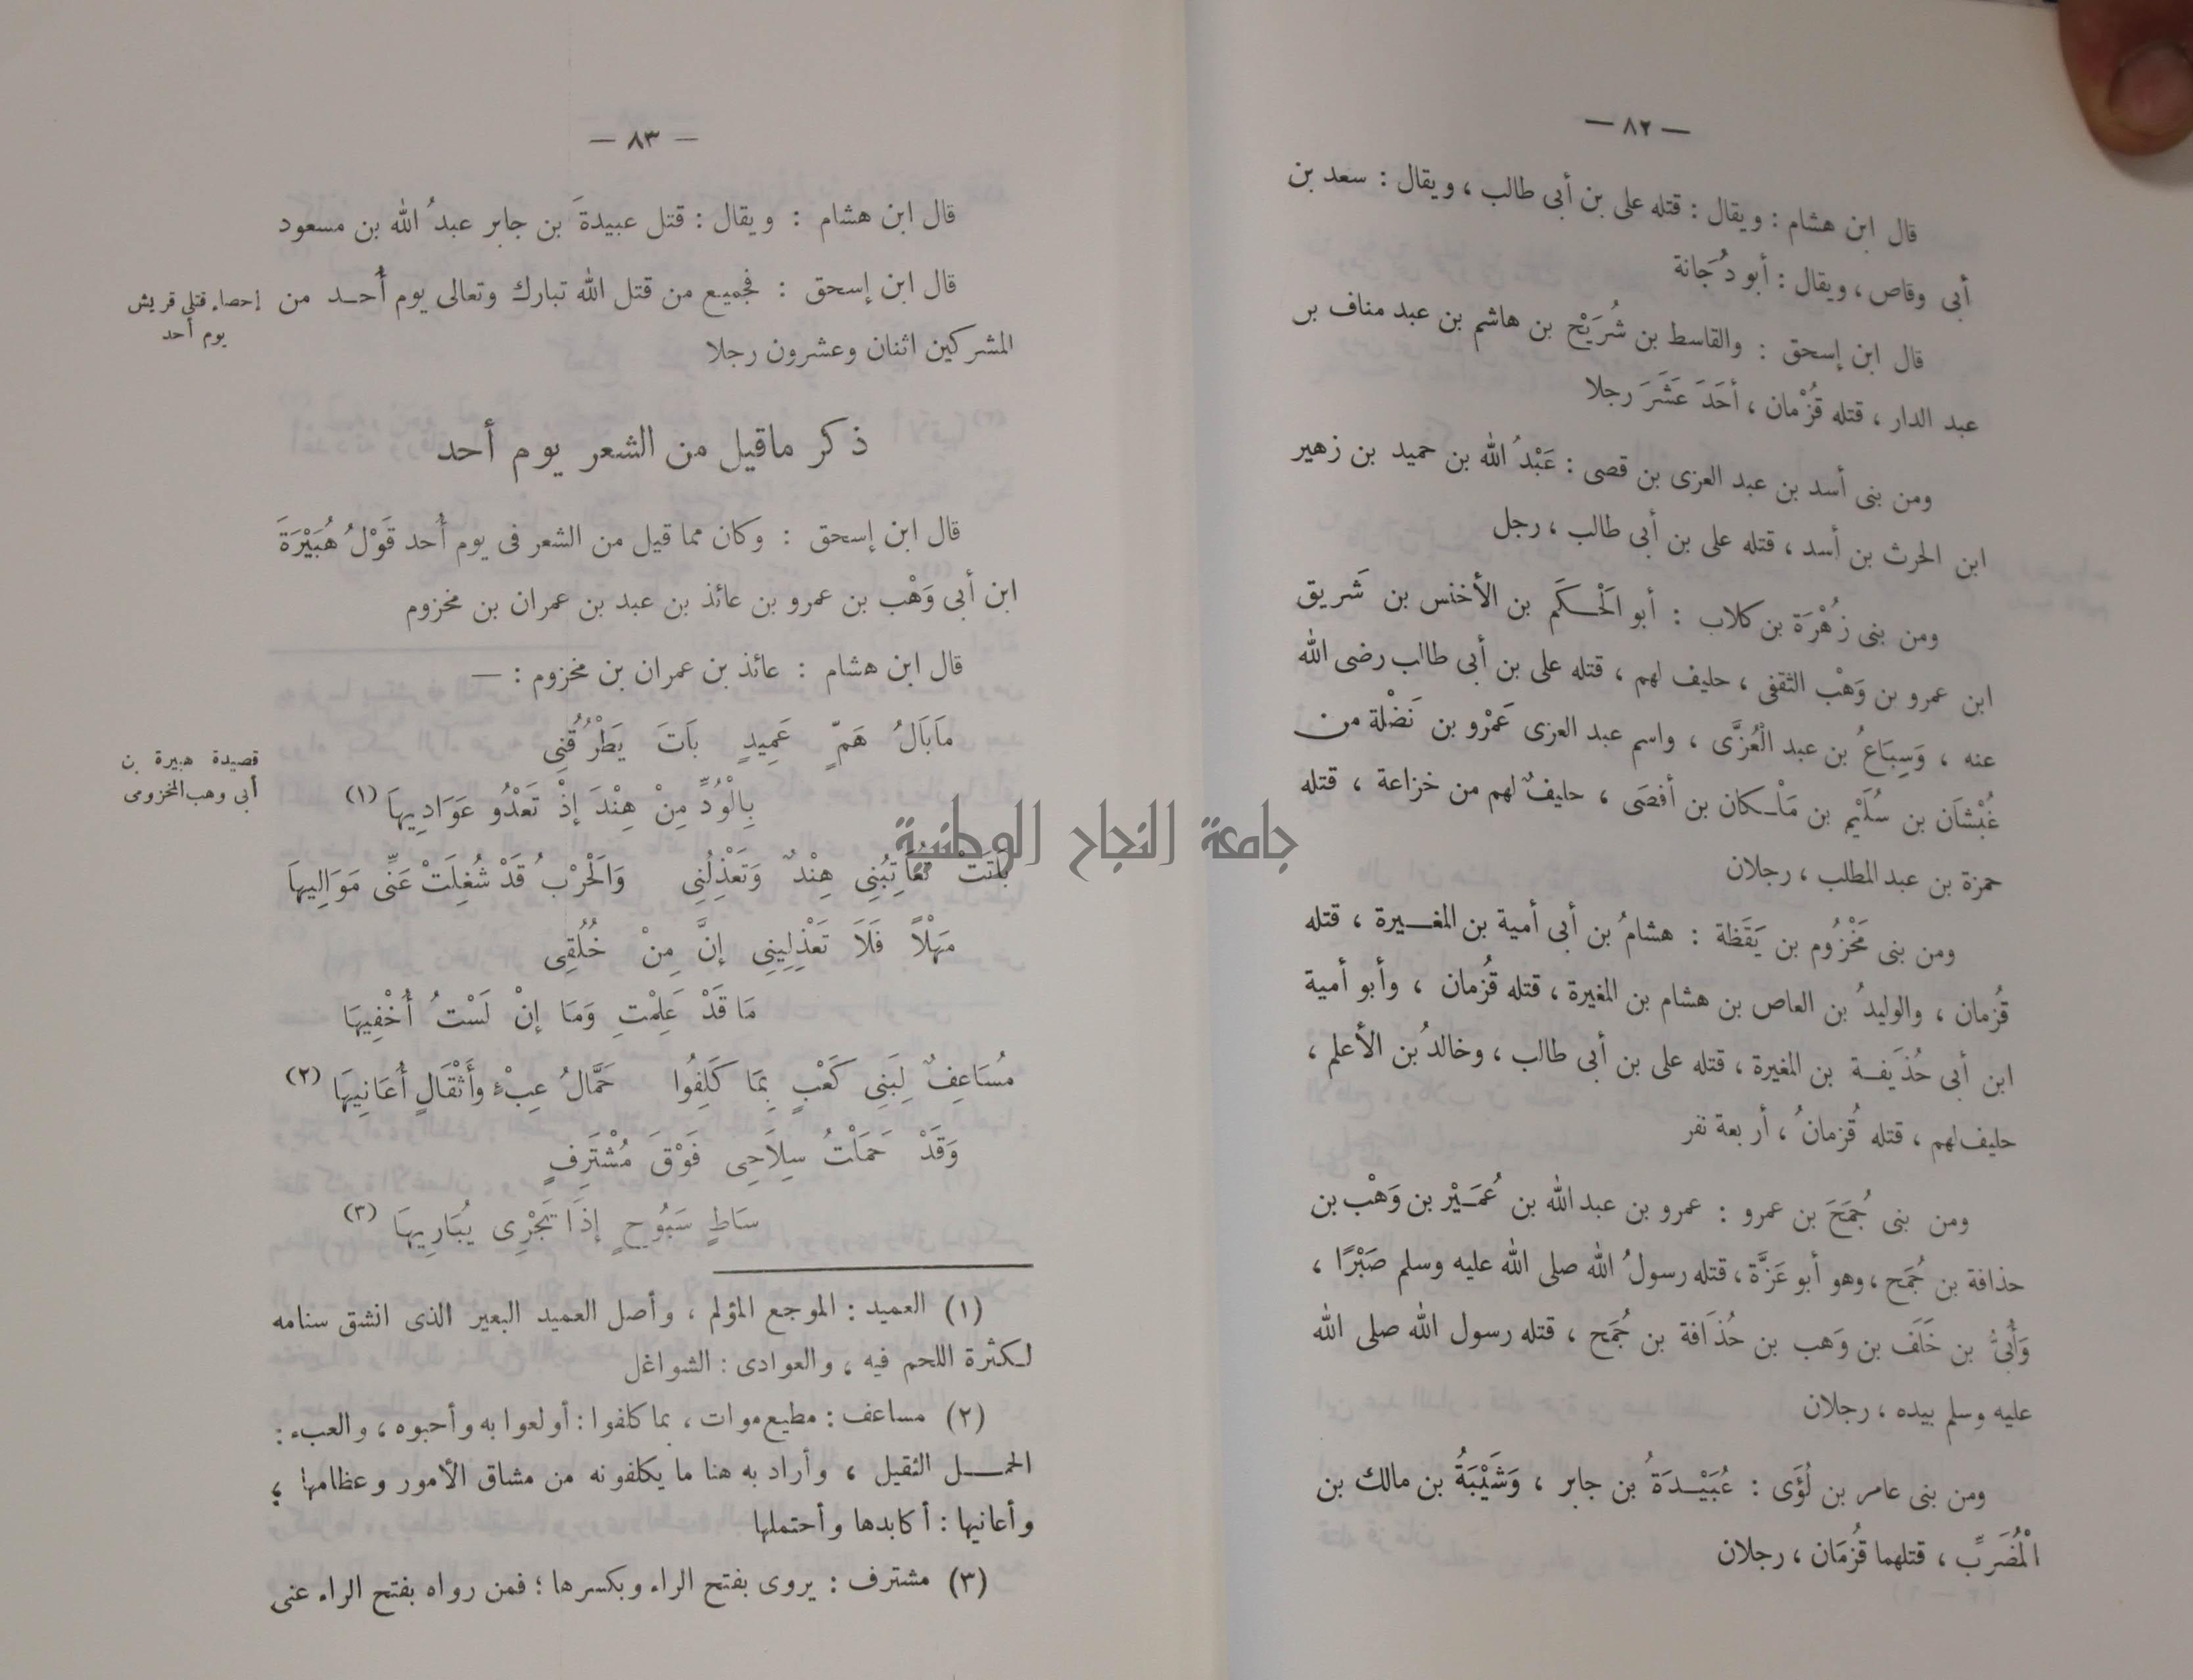 — ٨٢ —
قال ابن هشام : ويقال : قتله على بن أبى طالب ، ويقال : سعد بن
أبى وقاص ، ويقال : أبو دُجَانة
قال ابن إسحق : والقاسط بن شُرَيْح بن هاشم بن عبد مناف بن
عبد الدار ، قتله قُزْمان ، أحَدَ عَشَرَ رجلا
ومن بنى أسد بن عبد العزى بن قصى : عَبْدُ الله بن حميد بن زهير
ابن الحرث بن أسد ، قتله على بن أبى طالب ، رجل
ومن بنى زُهْرَة بن كلاب : أبو الْحَكَم بن الأخنس بن شَريق
ابن عمرو بن وَهْب الثقفى ، حليف لهم ، قتله على بن أبى طالب رضى الله
عنه ، وَسِبَاعُ بن عبد الْعُزَّى ، واسم عبد العزى عَمْرو بن نَضْلة من
غُبْشَان بن سُلَيْم بن مَلْكان بن أفصَى ، حليفٌ لهم من خزاعة ، قتله
حمزة بن عبد المطلب ، رجلان
ومن بنى مَخْزُوم بن يَقَظة : هشامُ بن أبى أمية بن المغيرة ، قتله
قُزمان ، والوليدُ بن العاص بن هشام بن المغيرة ، قتله قُزمان ، وأبو أمية
ابن أبى حُذَيفة بن المغيرة ، قتله على بن أبى طالب ، وخالدُ بن الأعلم ،
حليف لهم ، قتله قُزمانُ ، أربعة نفر
ومن بنى جُمَحَ بن عمرو : عمرو بن عبد الله بن عُمَيْر بن وَهْب بن
حذافة بن جُمَح ، وهو أبو عَزَّة ، قتله رسولُ الله صلى الله عليه وسلم صَبْرًا ،
وَأُبىُّ بن خَلَف بن وَهب بن حُذَافة بن جُمَح ، قتله رسول الله صلى الله
عليه وسلم بيده ، رجلان
ومن بنى عامر بن لُؤَى : عُبَيْدَةُ بن جابر ، وَشَيْبَةُ بن مالك بن
الْمُضَرِّب ، قتلهما قُزمَان ، رجلان
— ٨٣ —
قال ابن هشام : ويقال : قتل عبيدةَ بن جابر عبدُ الله بن مسعود
قال ابن إسحق : فجميع من قتل الله تبارك وتعالى يوم أُحد من
المشركين اثنان وعشرون رجلا
إحصاء قتلى قريش
يوم أحد
ذكر ماقيل من الشعر يوم أحد
قال ابن إسحق : وكان مما قيل من الشعر فى يوم أُحد قَوْلُ هُبَيْرَةَ
ابن أبى وَهْب بن عمرو بن عائذ بن عبد بن عمران بن مخزوم
قال ابن هشام : عائذ بن عمران بن مخزوم : —
قصيدة هبيرة بن
أبى وهب المخزومى
مَابَالُ هَمٍّ عَمِيدٍ بَاتَ يَطْرُقُنِى
بِالْوُدِّ مِنْ هِنْدَ إذْ تَعْدُو عَوَادِيهَا (١)
بَاتَتْ تُعَاتِبُنِى هِنْدٌ وَتَعْذِلُنِى وَالْحَرْبُ قَدْ شُغِلَتْ عَنِّى مَوَالِيهَا
مَهْلاً فَلاَ تَعْذِلِينِى إنَّ مِنْ خُلُقِى
مَا قَدْ عَلِمْتِ وَمَا إنْ لَسْتُ أُخْفِيهَا
مُسَاعِفٌ لِبَنِى كَعْبٍ بِمَا كَلِفُوا حَمَّالُ عِبْءٍ وأَثْقَالٍ أُعَانِيهَا (٢)
وَقَدْ حَمَلْتُ سِلاَحِى فَوْقَ مُشْتَرِفٍ
سَاطٍ سَبُوحٍ إذَا تَجْرِى يُبَارِيهَا (٣)
(١) العميد : الموجع المؤلم ، وأصل العميد البعير الذى انشق سنامه
لكثرة اللحم فيه ، والعوادى : الشواغل
(٢) مساعف : مطيع موات ، بما كلفوا : أولعوا به وأحبوه ، والعبء :
الحمل الثقيل ، وأراد به هنا ما يكلفونه من مشاق الأمور وعظامها ،
وأعانيها : أكابدها وأحتملها
(٣) مشترف : يروى بفتح الراء وبكسرها ؛ فمن رواه بفتح الراء عنى
جامعة النجاح الوطنية